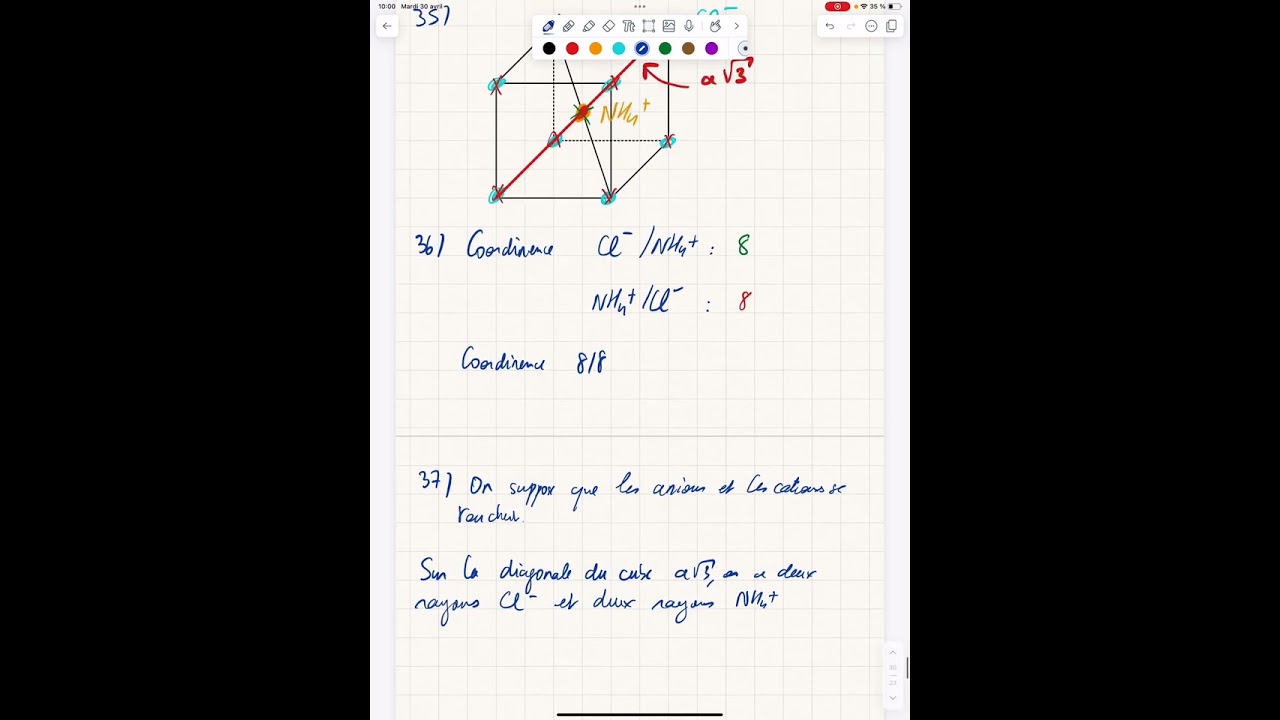 10:00 Mardi 30 avril
35 %
35)
Cl⁻
a√3
NH₄⁺
36) Coordinence Cl⁻/NH₄⁺ : 8
NH₄⁺/Cl⁻ : 8
Coordinence 8/8
37) On suppose que les anions et les cations se
touchent.
Sur la diagonale du cube a√3, on a deux
rayons Cl⁻ et deux rayons NH₄⁺